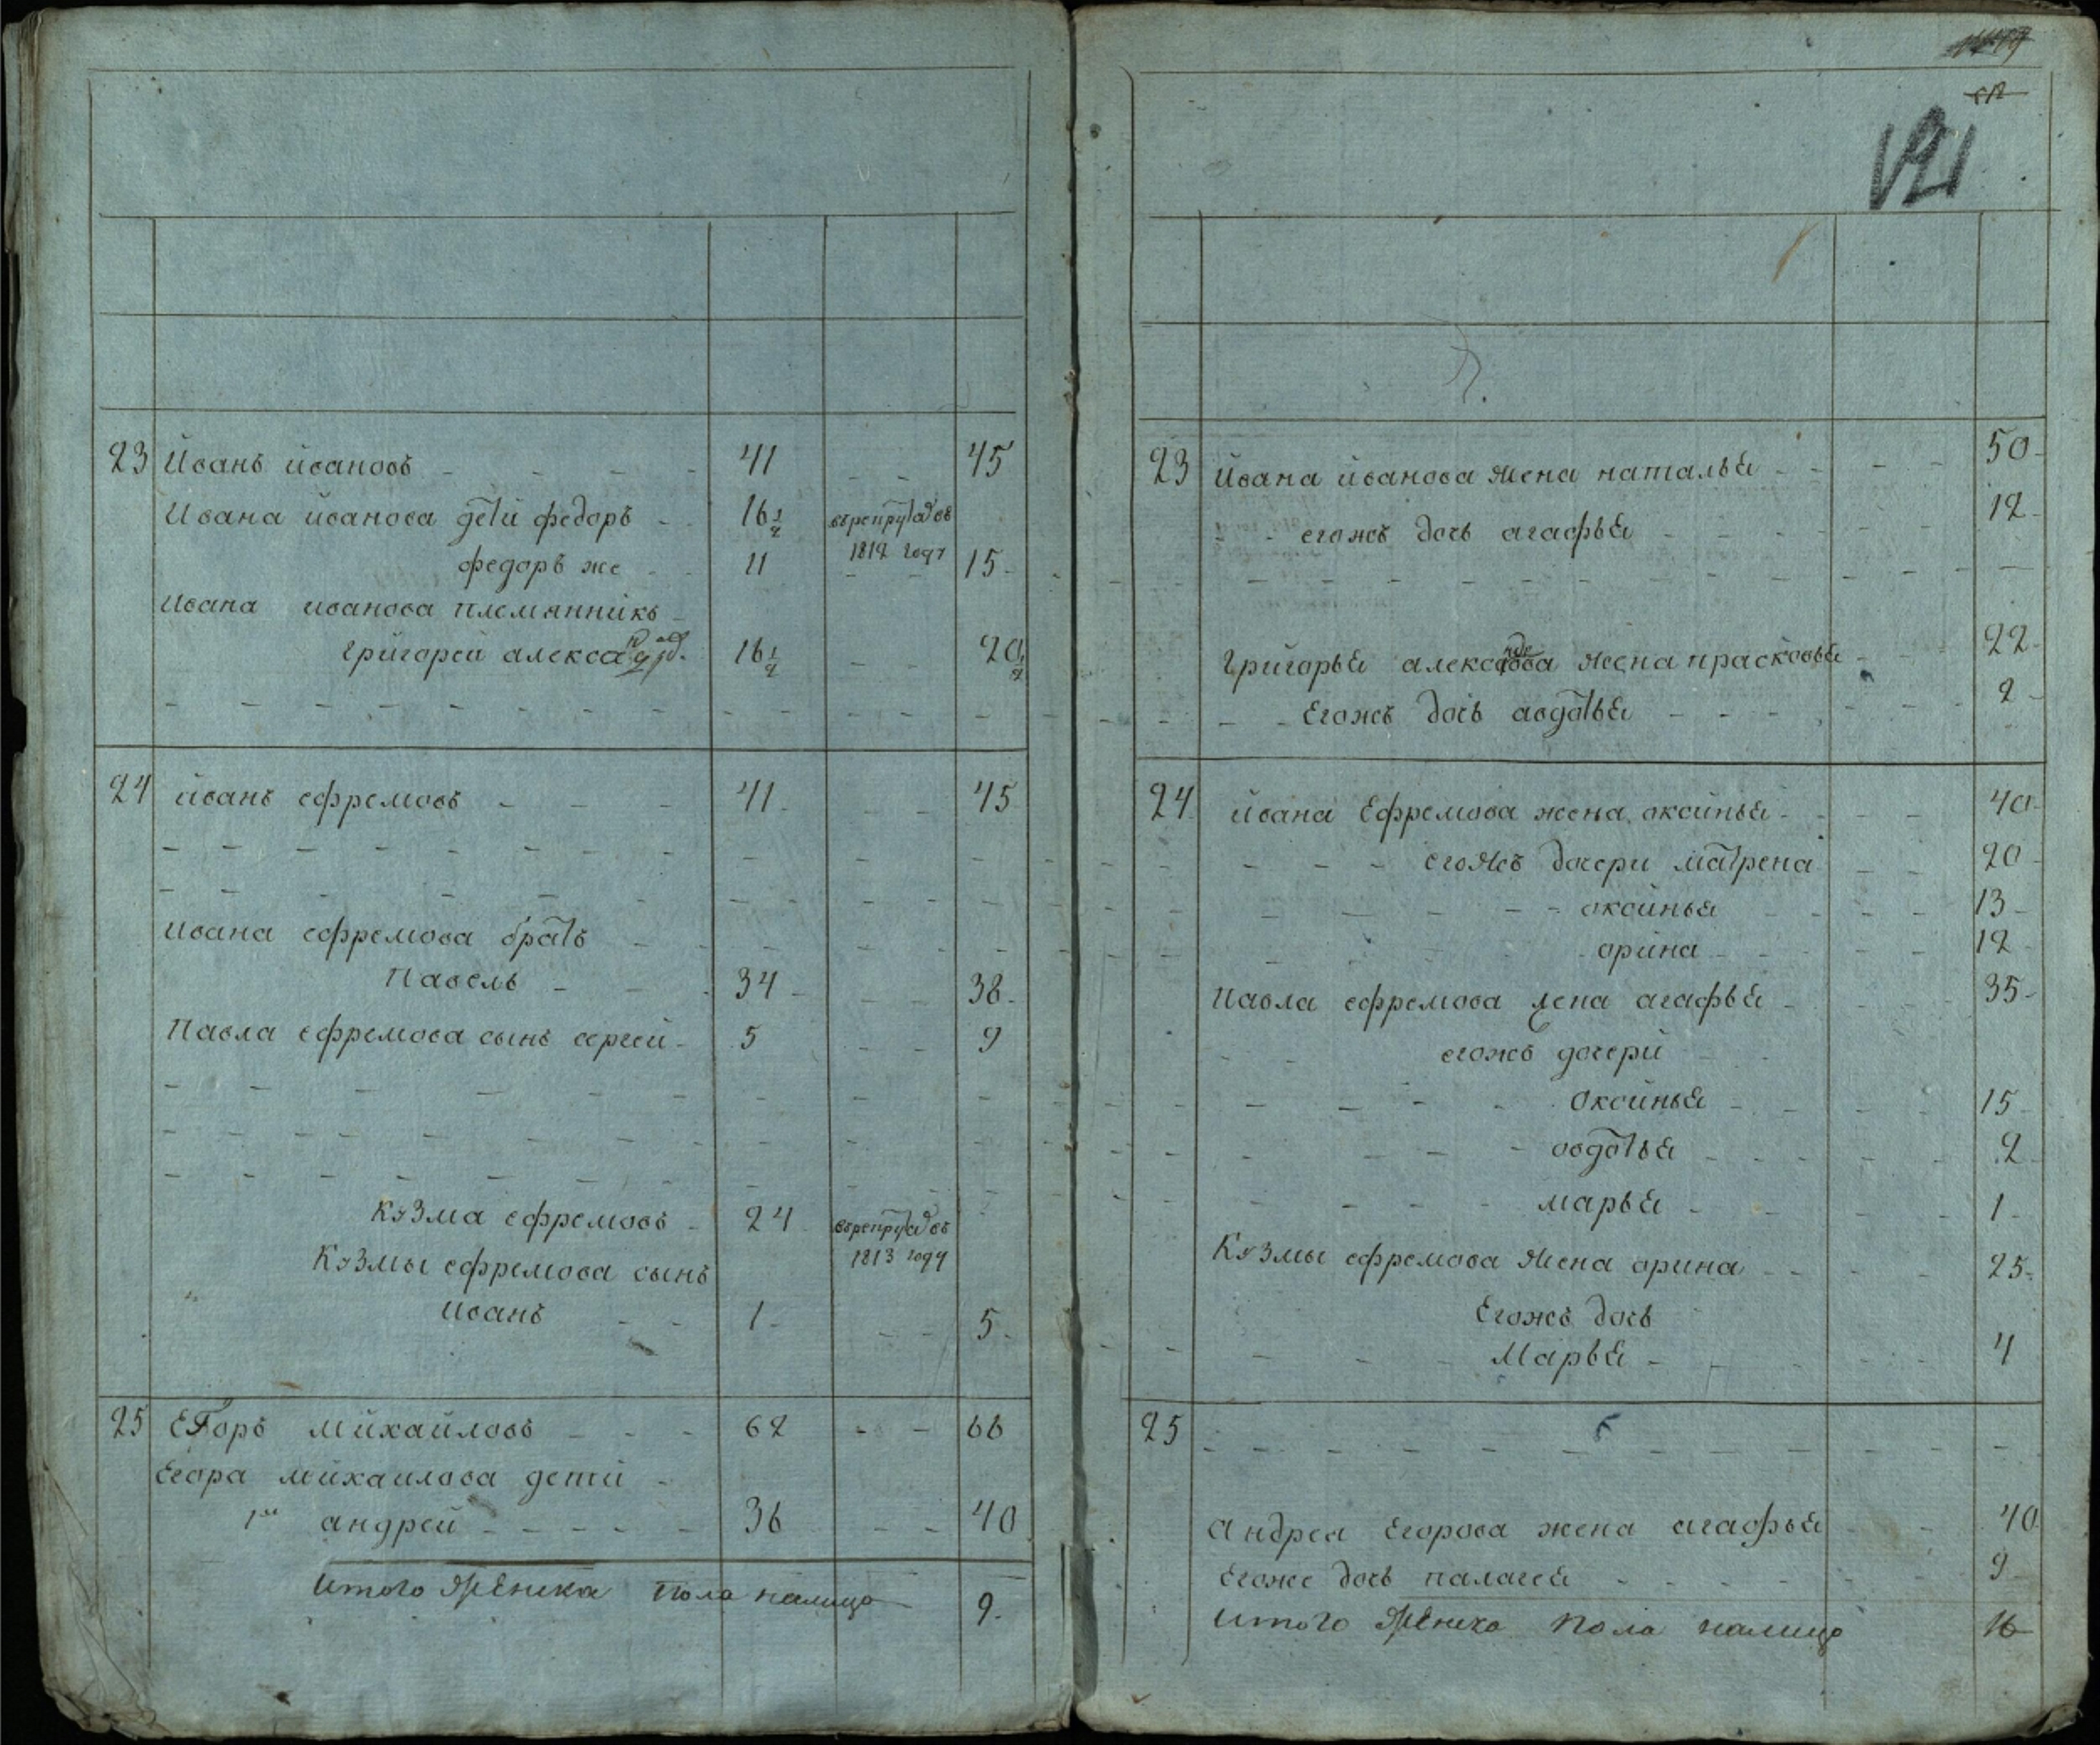 23 Иванъ ивановъ 41 45
Ивана иванова дети федоръ 16½ въ рекрутах съ
1812 году
федоръ же 11 15
Ивана иванова племянникъ
григорей александровъ 16½ 20½
24 иванъ ефремовъ 41 45
Ивана ефремова братъ
Павелъ 34 38
Павла ефремова сынъ сергей 5 9
Кузма ефремовъ 24
1813 году
Кузмы ефремова сынъ
Иванъ 1 5
25 Егоръ михайловъ 62 66
Егора михаилова дети
1й андрей 36 40
Итого пола налицо 9
121
23 Ивана иванова жена наталья 50
егожъ дочь агафья 12
григорья александрова жена прасковья 22
Егожъ дочь авдотья 2
24 ивана Ефремова жена оксинья 40
егожъ дочери матрена 20
оксинья 13
орина 12
Павла ефремова жена агафья 35
егожъ дочери
Оксинья 15
овдотья 2
марья 1
Кузмы ефремова жена орина 25
Егожъ дочь
Марья 4
25
Андрея Егорова жена агафья 40
Егоже дочь палагея 9
Итого Женска Пола налицо 16